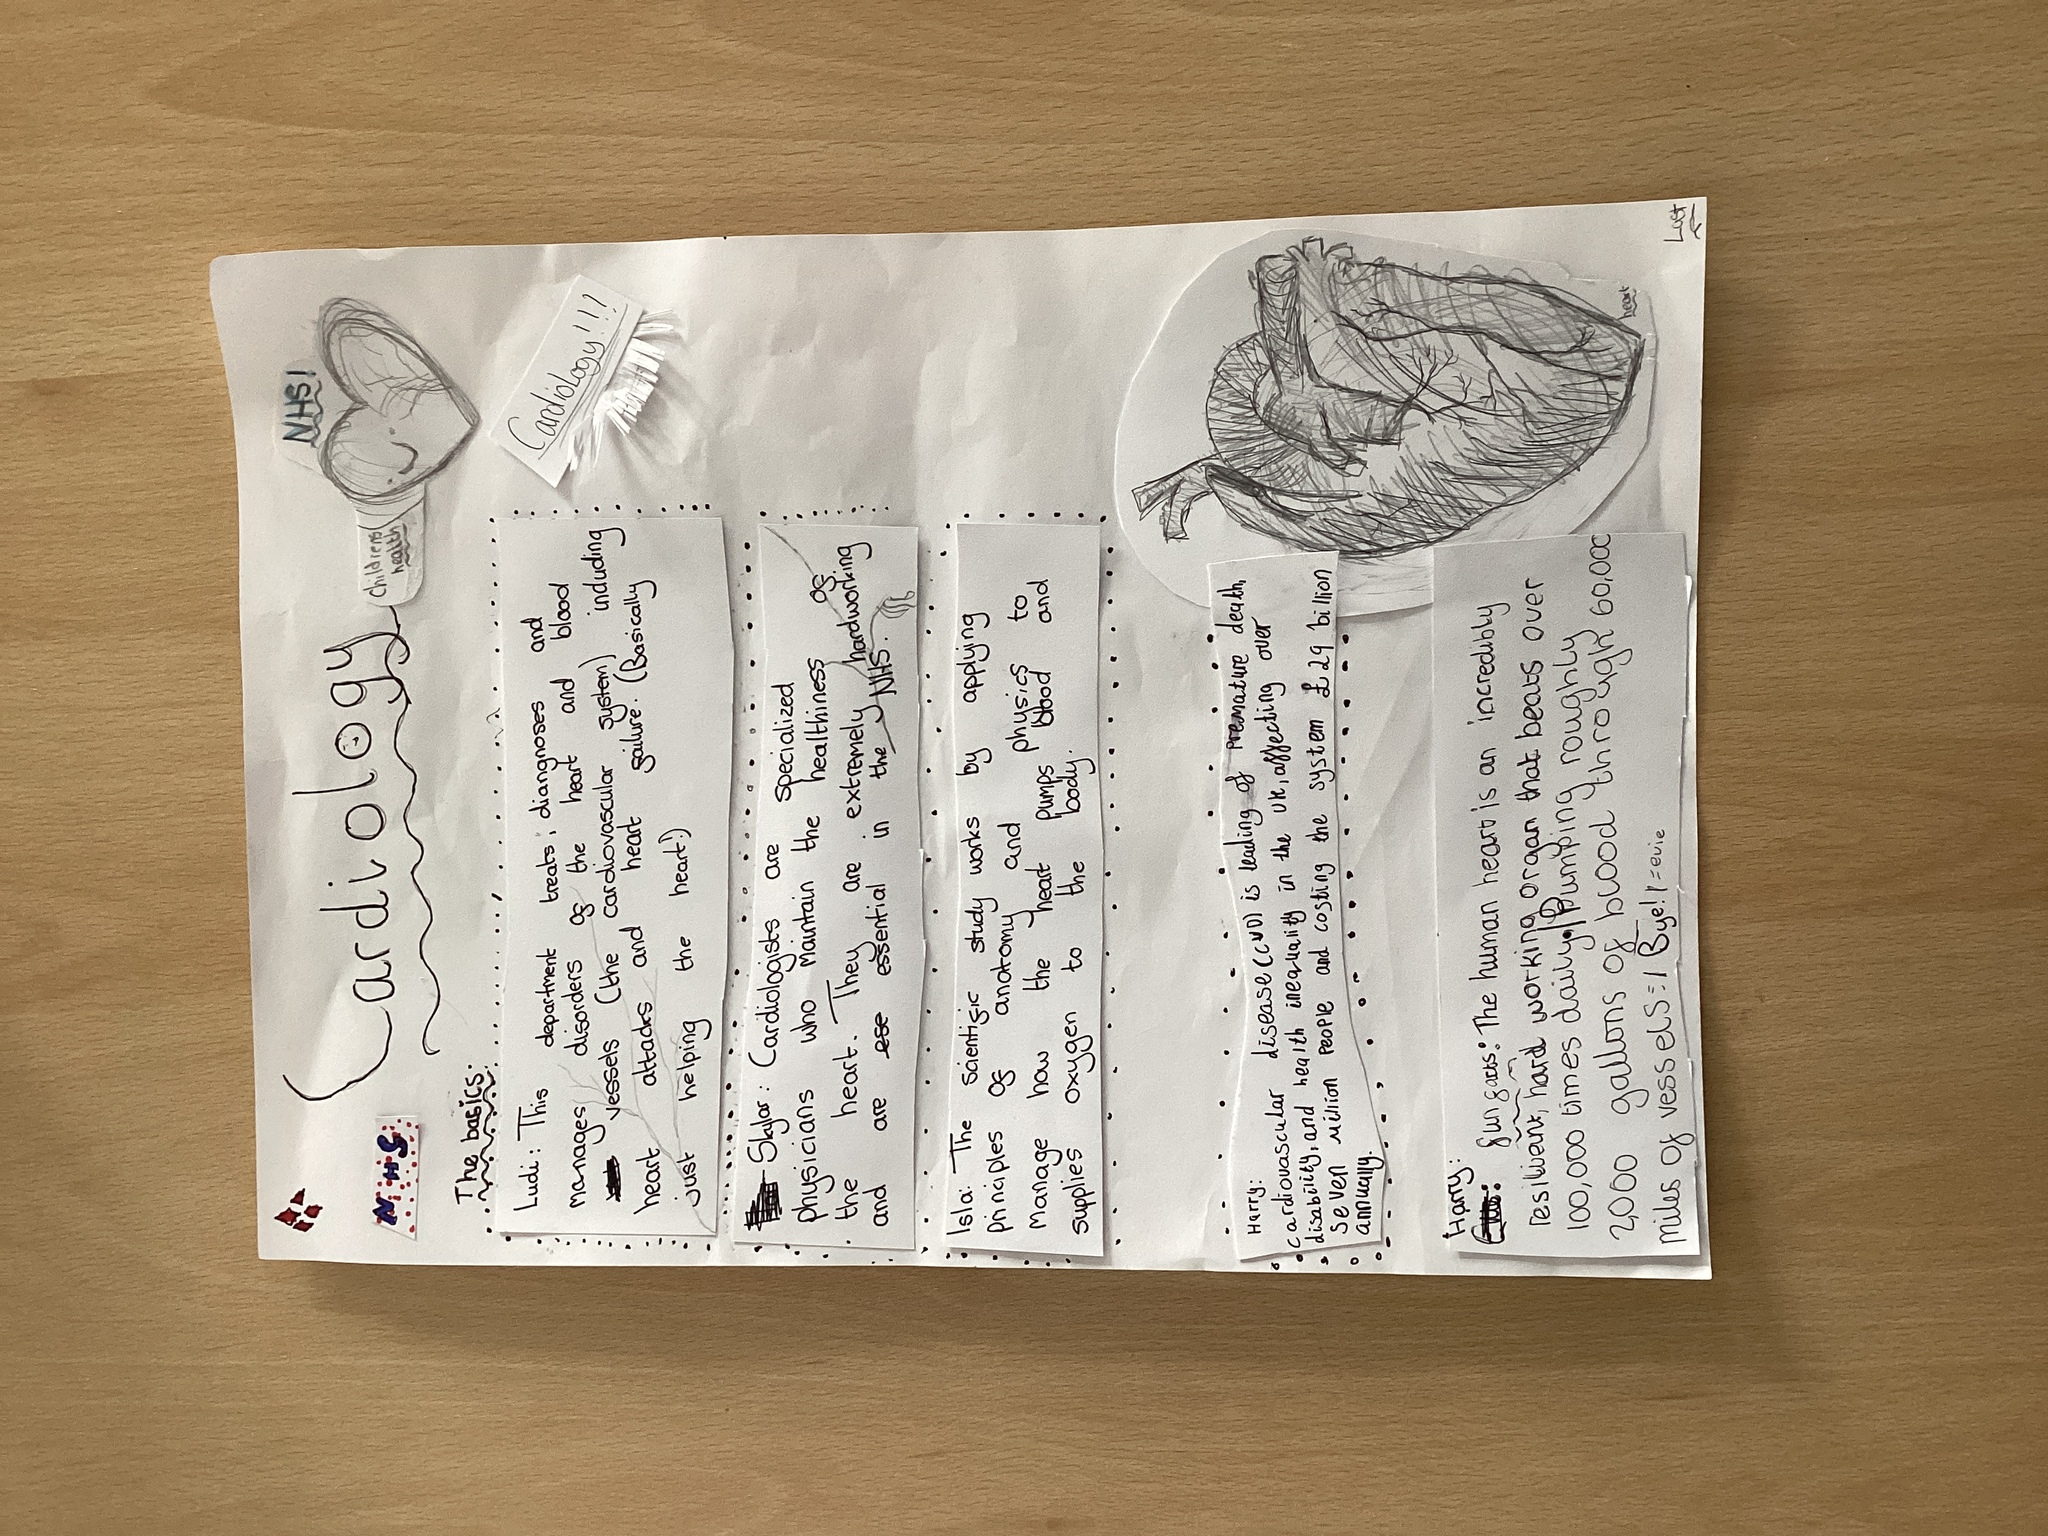 NHS!
Cardiology
childrens
health
NHS
Cardiology!!!
The basics:
Ludi: This department treats, diangnoses and
manages disorders of the heart and blood
vessels (the cardiovascular system) including
heart attacks and heart failure. (Basically
just helping the heart!)
Skylar: Cardiologists are specialized
physicians who maintain the healthiness of
the heart. They are extremely hardworking
and are ese essential in the NHS.
Isla: The scientific study works by applying
principles of anotomy and physics to
manage how the heart pumps blood and
supplies oxygen to the body.
Harry:
Cardiovascular disease (CVD) is leading of premature death,
disability, and health inequality in the UK, affecting over
seven million people and costing the system £29 billion
annually.
Harry:
fun facts: The human heart is an incredibly
resilient, hard working organ that beats over
100,000 times daily, pumping roughly
2,000 gallons of blood through 60,000
miles of vessels! Bye! =evie
heart